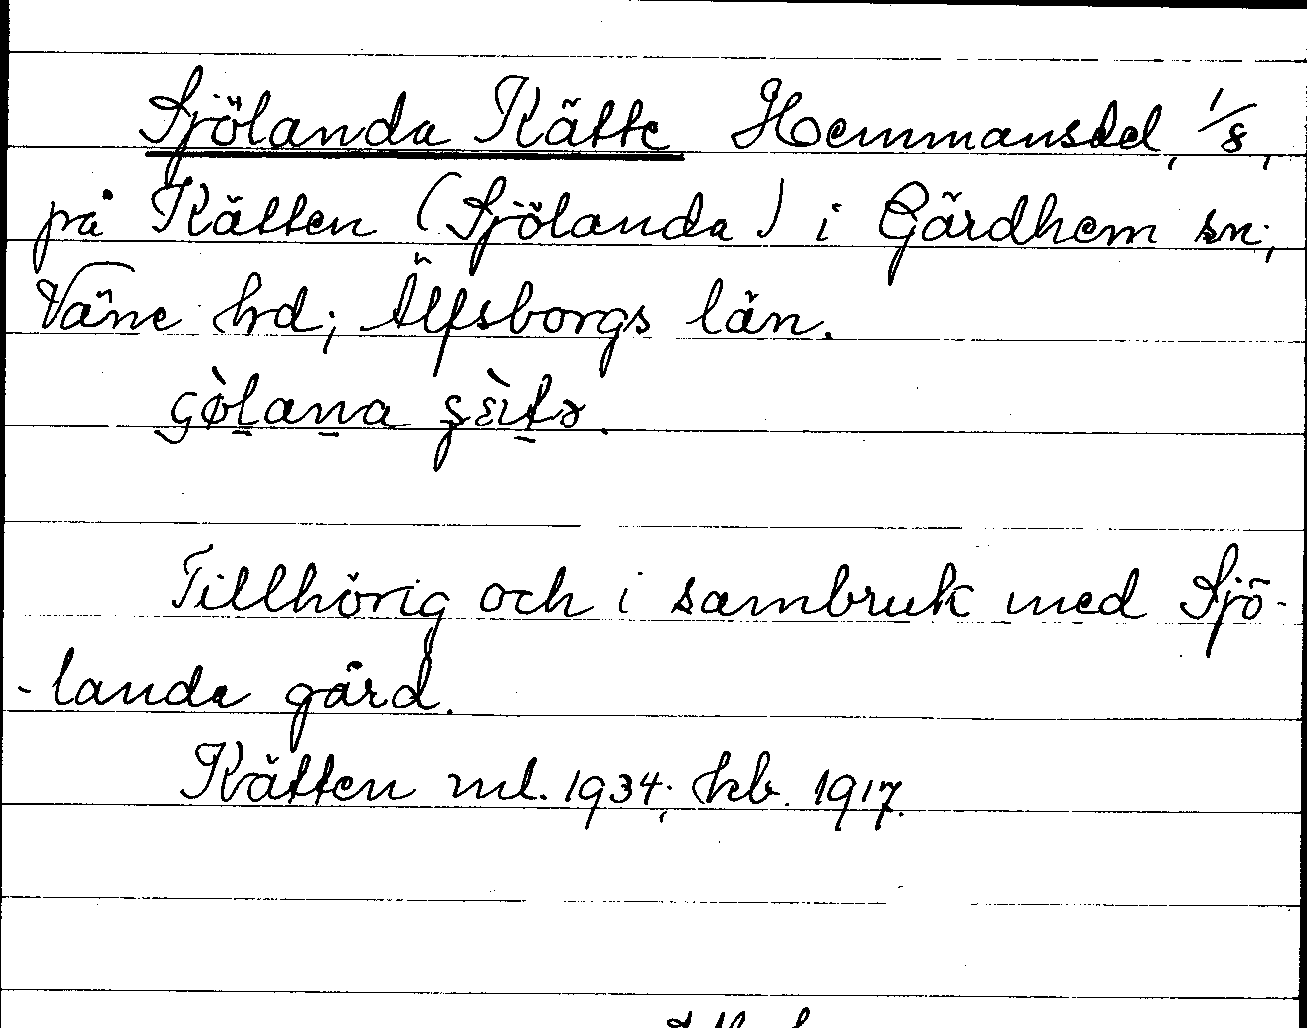 Sjölanda Kätte Hemmansdel, 1/8,
på Kätten (Sjölanda) i Gärdhem sn;
Väne hd; Älfsborgs län.
Tillhörig och i sambruk med Sjö-
-landa gård.
Kätten ml. 1934; hb. 1917.